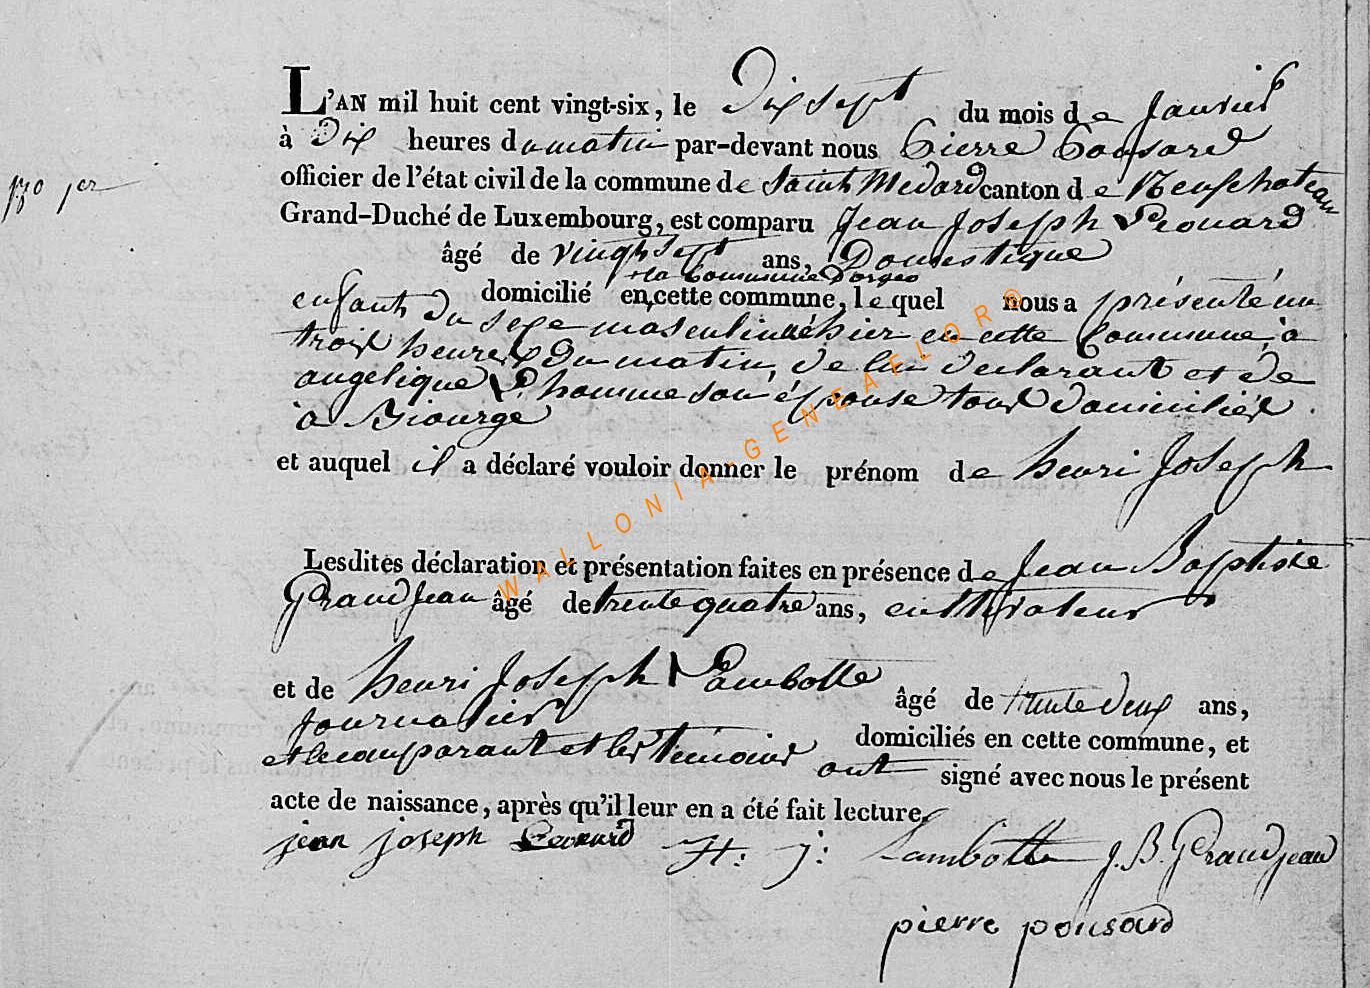 L'AN mil huit cent vingt-six, le Dix sept du mois de Janvier
à Dix heures du matin par-devant nous Pierre Ponsard
N° 1er
officier de l'état civil de la commune de Saint Medard canton de Neufchateau
Grand-Duché de Luxembourg, est comparu Jean Joseph Leonard
âgé de vingt sept ans, Domestique
la Commune D'orgeo
domicilié en cette commune, lequel nous a présenté un
enfant du sexe masculin né hier en cette Commune, à
trois heures du matin, de lui declarant et de
angelique Lhomme son épouse tous domiciliés
à Biourge
et auquel il a déclaré vouloir donner le prénom de henri Joseph
Lesdites déclaration et présentation faites en présence de Jean Baptiste
Grandjean âgé de trente quatre ans, cultivateur
et de henri Joseph Lambotte âgé de trente deux ans,
Journalier
domiciliés en cette commune, et
et le comparant et les temoins ont signé avec nous le présent
acte de naissance, après qu'il leur en a été fait lecture.
jean joseph Leonard H: j: Lambotte J. B. Grandjean
pierre ponsard
WALLONIA-GENEAFLOR®